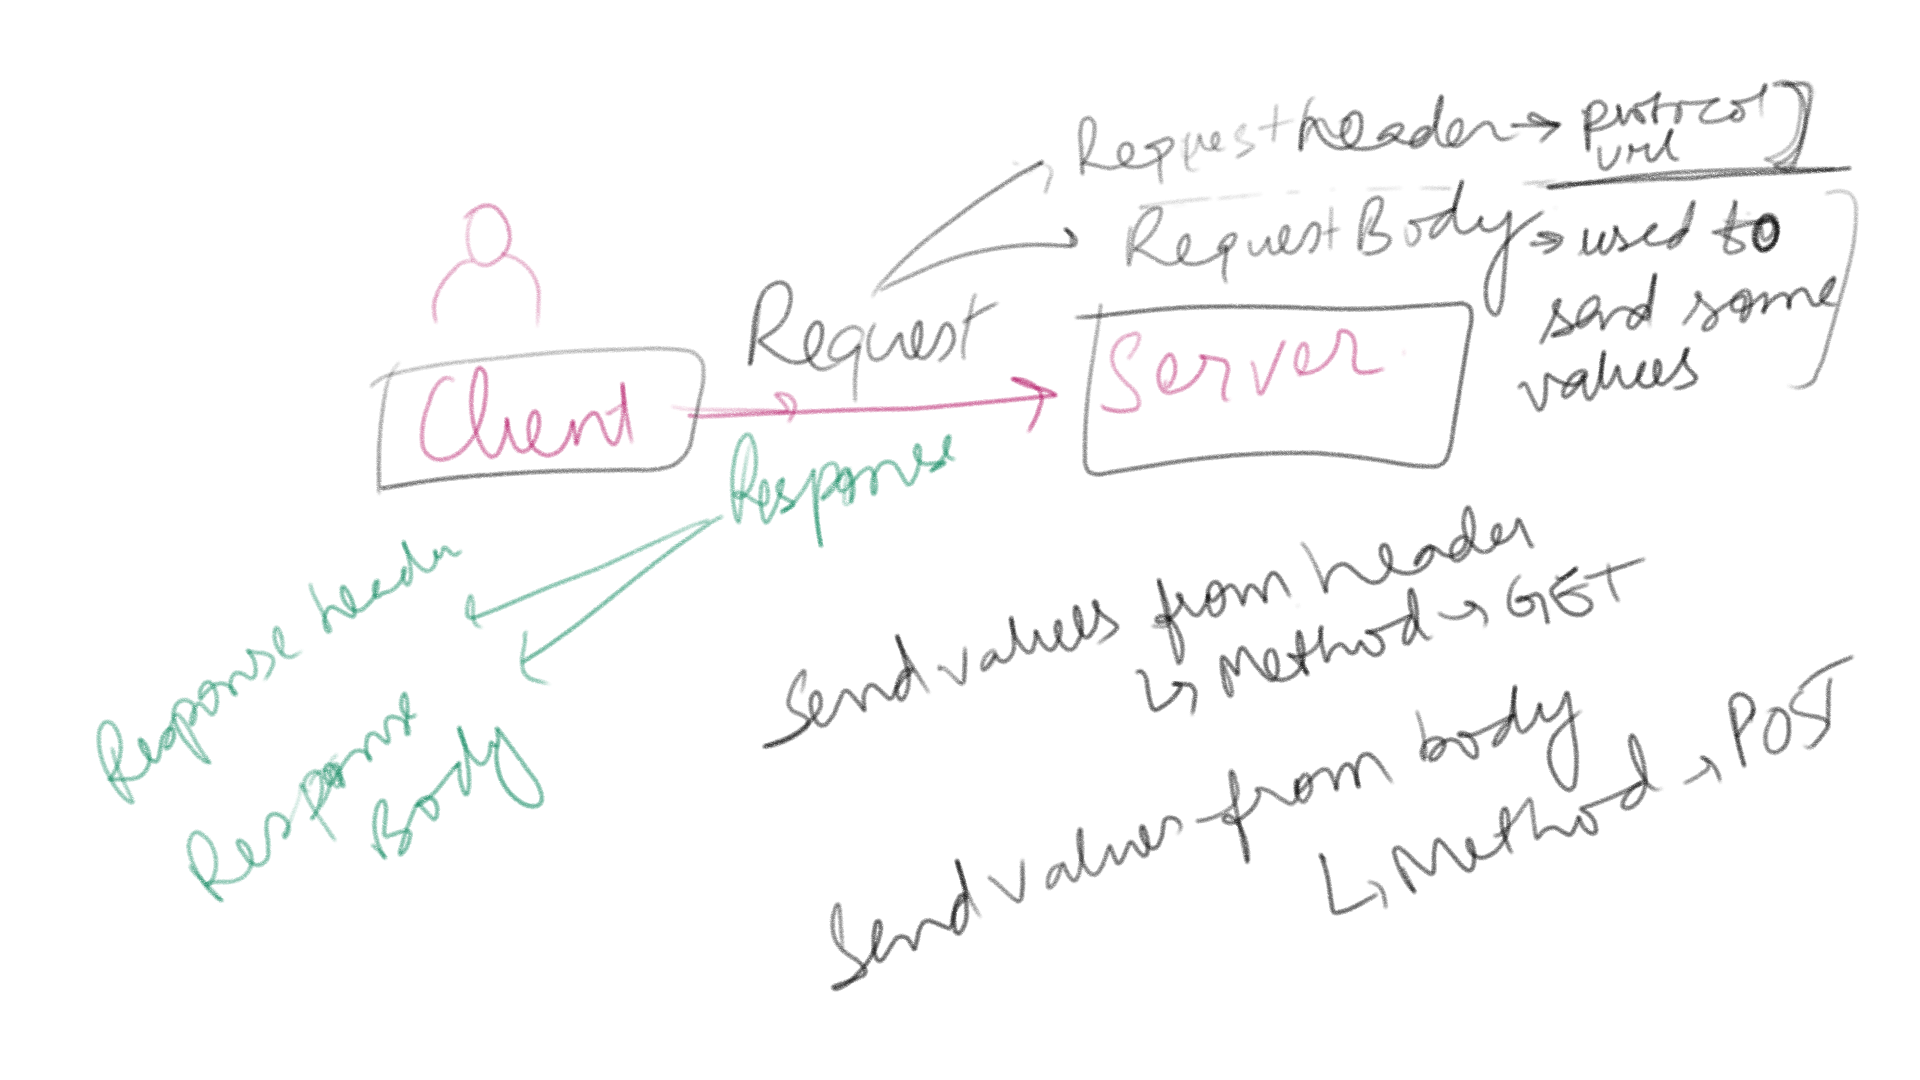 Request header → protocol
url
Request Body → used to
send some
values
Request
Client
Server
Response
Response header
Response
Body
Send values from header
↳ Method → GET
Send values from body
↳ Method → POST